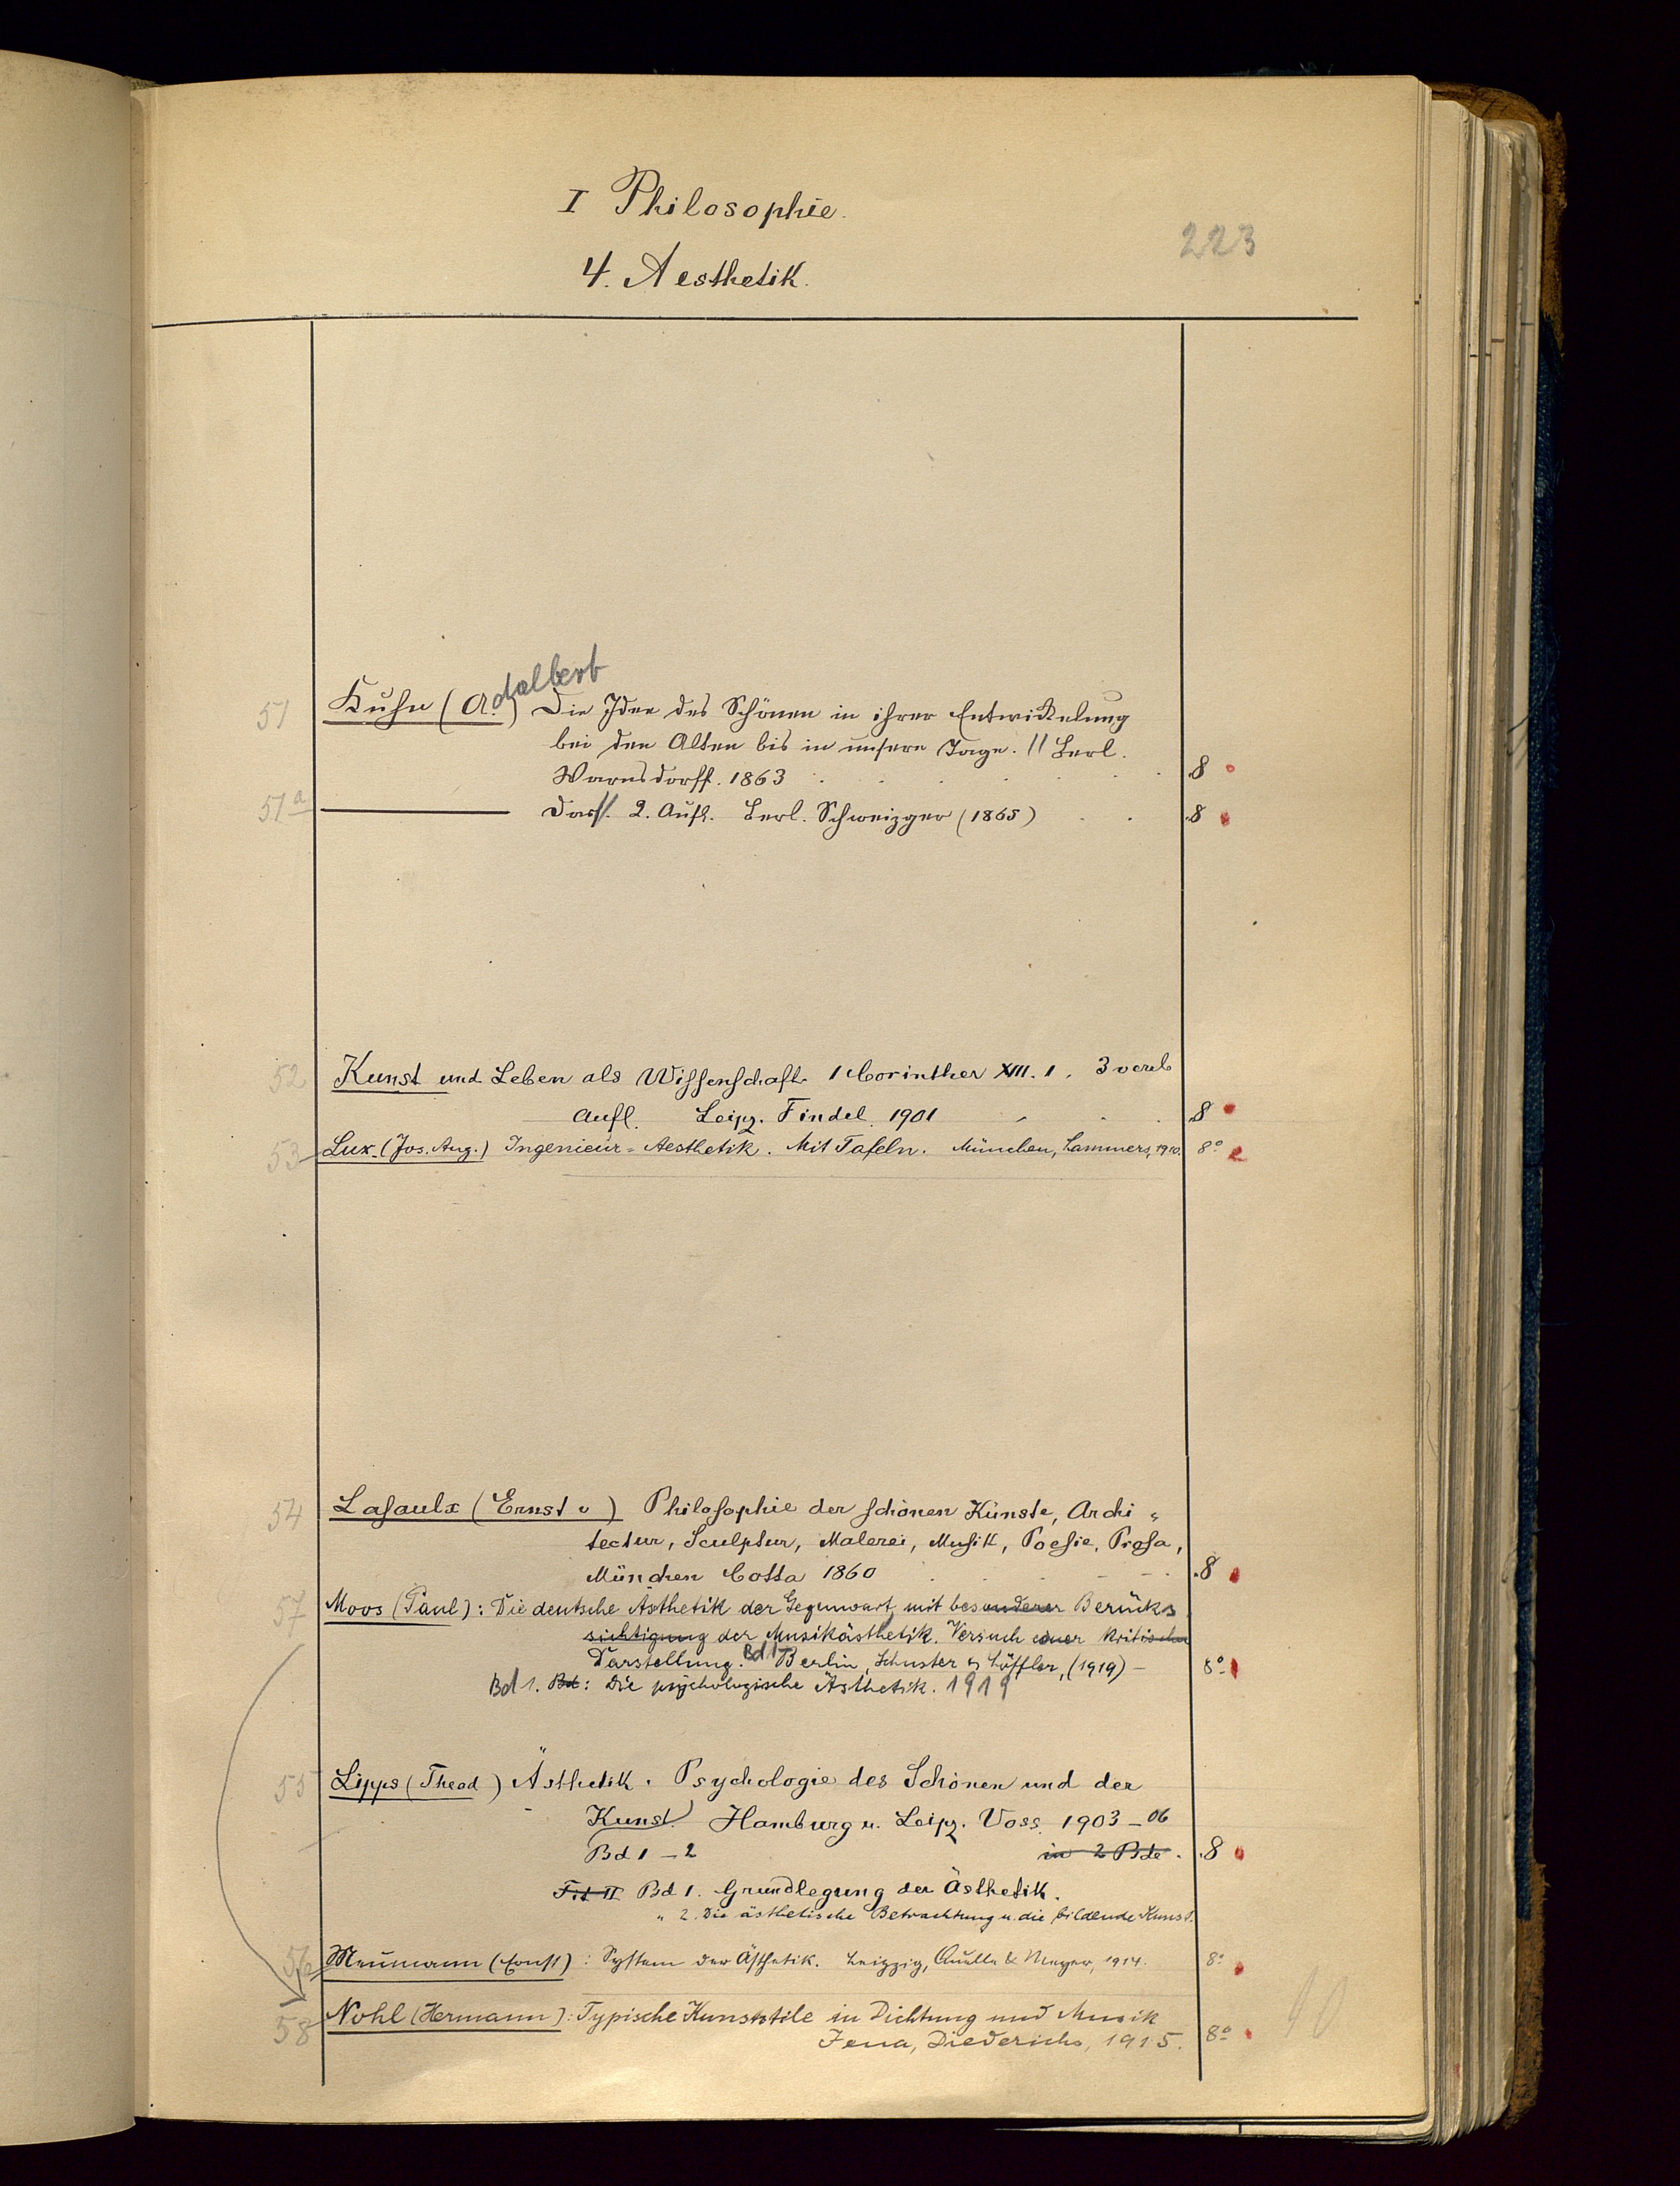 I Philosophie.
223
4. Aesthetik.
51 Kuhn (Adalbert) Die Idee des Schönen in ihrer Entwickelung
bei den Alten bis in unsere Tage. || Berl.
Warnsdorff. 1863 . . . . . 8
51a ——— Dass. 2. Aufl. Berl. Schweizger (1865) . . 8
52 Kunst und Leben als Wissenschaft 1 Corinther XIII. 1. 3 verb
Aufl. Leipz. Findel. 1901 8
53 Lux (Jos. Aug.) Ingenieur-Aesthetik. Mit Tafeln. München, Lammers, 1910. 8°
54 Lasaulx (Ernst v) Philosophie der schönen Künste, Archi-
tectur, Sculptur, Malerei, Musik, Poesie, Prosa,
München Cotta 1860 . . . . 8
57 Moos (Paul): Die deutsche Ästhetik der Gegenwart mit besonderer Berück-
sichtigung der Musikästhetik. Versuch einer kritischen
Darstellung. Bd 1 Berlin, Schuster & Löffler, (1919) – 8°
Bd 1. Bd: Die psychologische Ästhetik. 1919
55 Lipps (Theod) Ästhetik. Psychologie des Schönen und der
Kunst. Hamburg u. Leipz. Voss. 1903–06
Bd 1–2 in 2 Bde. 8
Tit II Bd 1. Grundlegung der Ästhetik.
" 2. Die ästhetische Betrachtung u. die bildende Kunst.
56 Meumann (Ernst): System der Ästhetik. Leipzig, Quelle & Meyer, 1914. 8°
58 Nohl (Hermann): Typische Kunststile in Dichtung und Musik
Jena, Diederichs, 1915. 8°
10